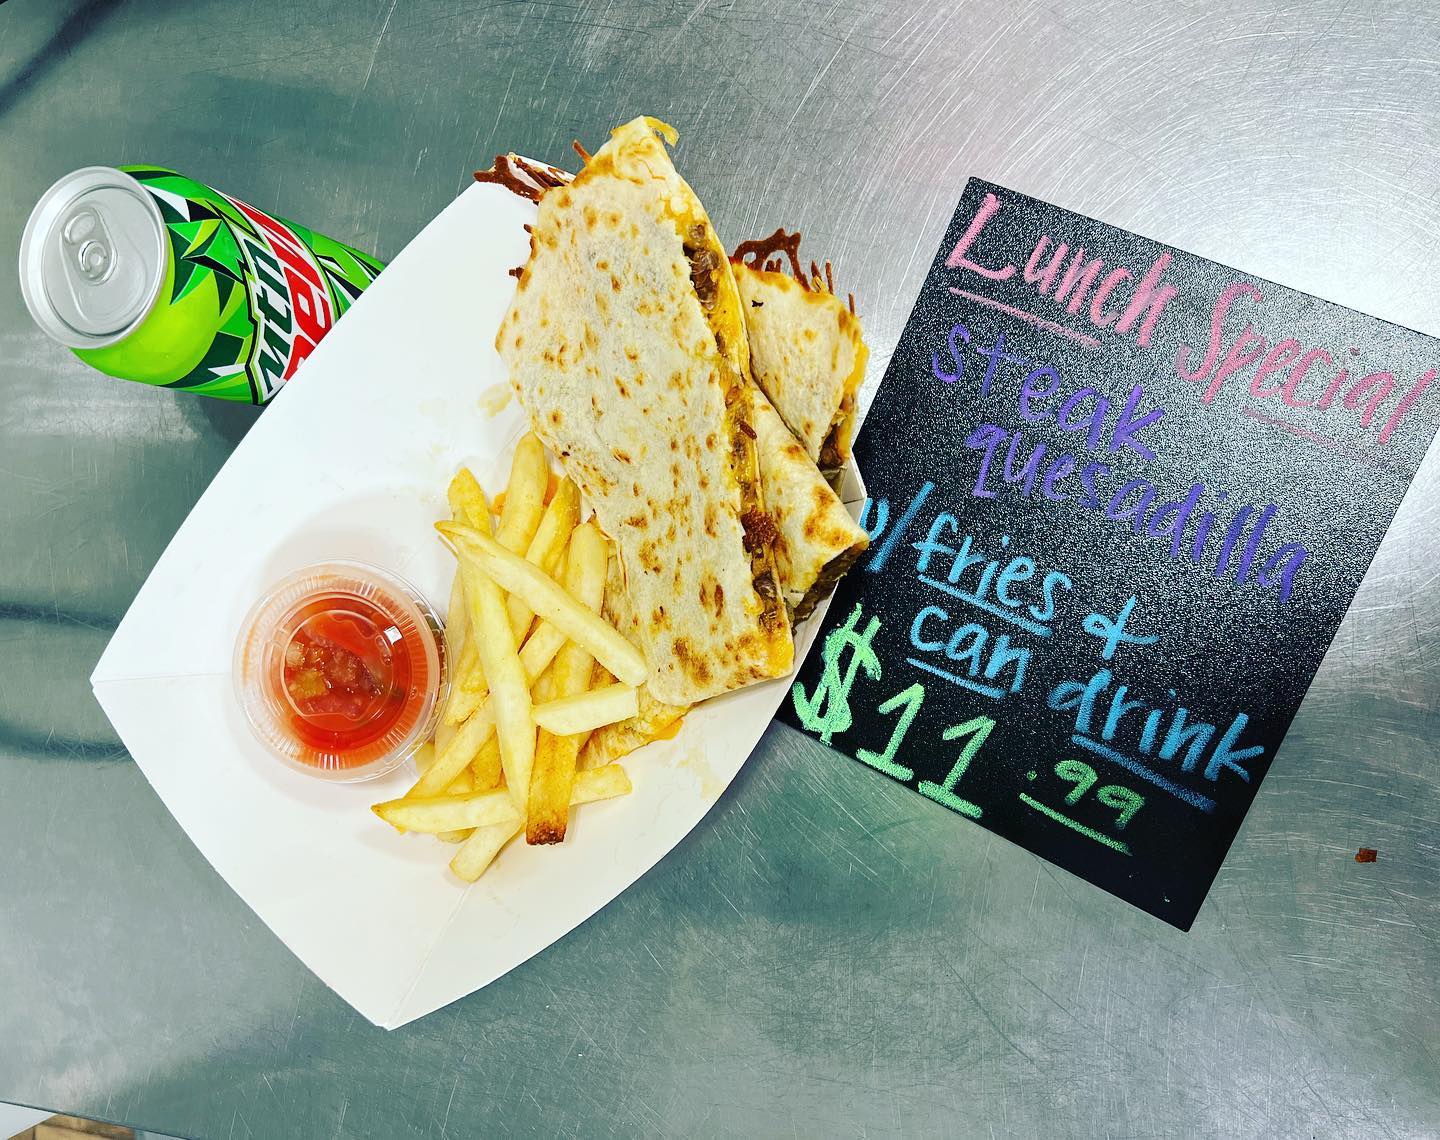 Mtn
Dew
Lunch Special
steak
quesadilla
w/ fries &
can drink
$11.99